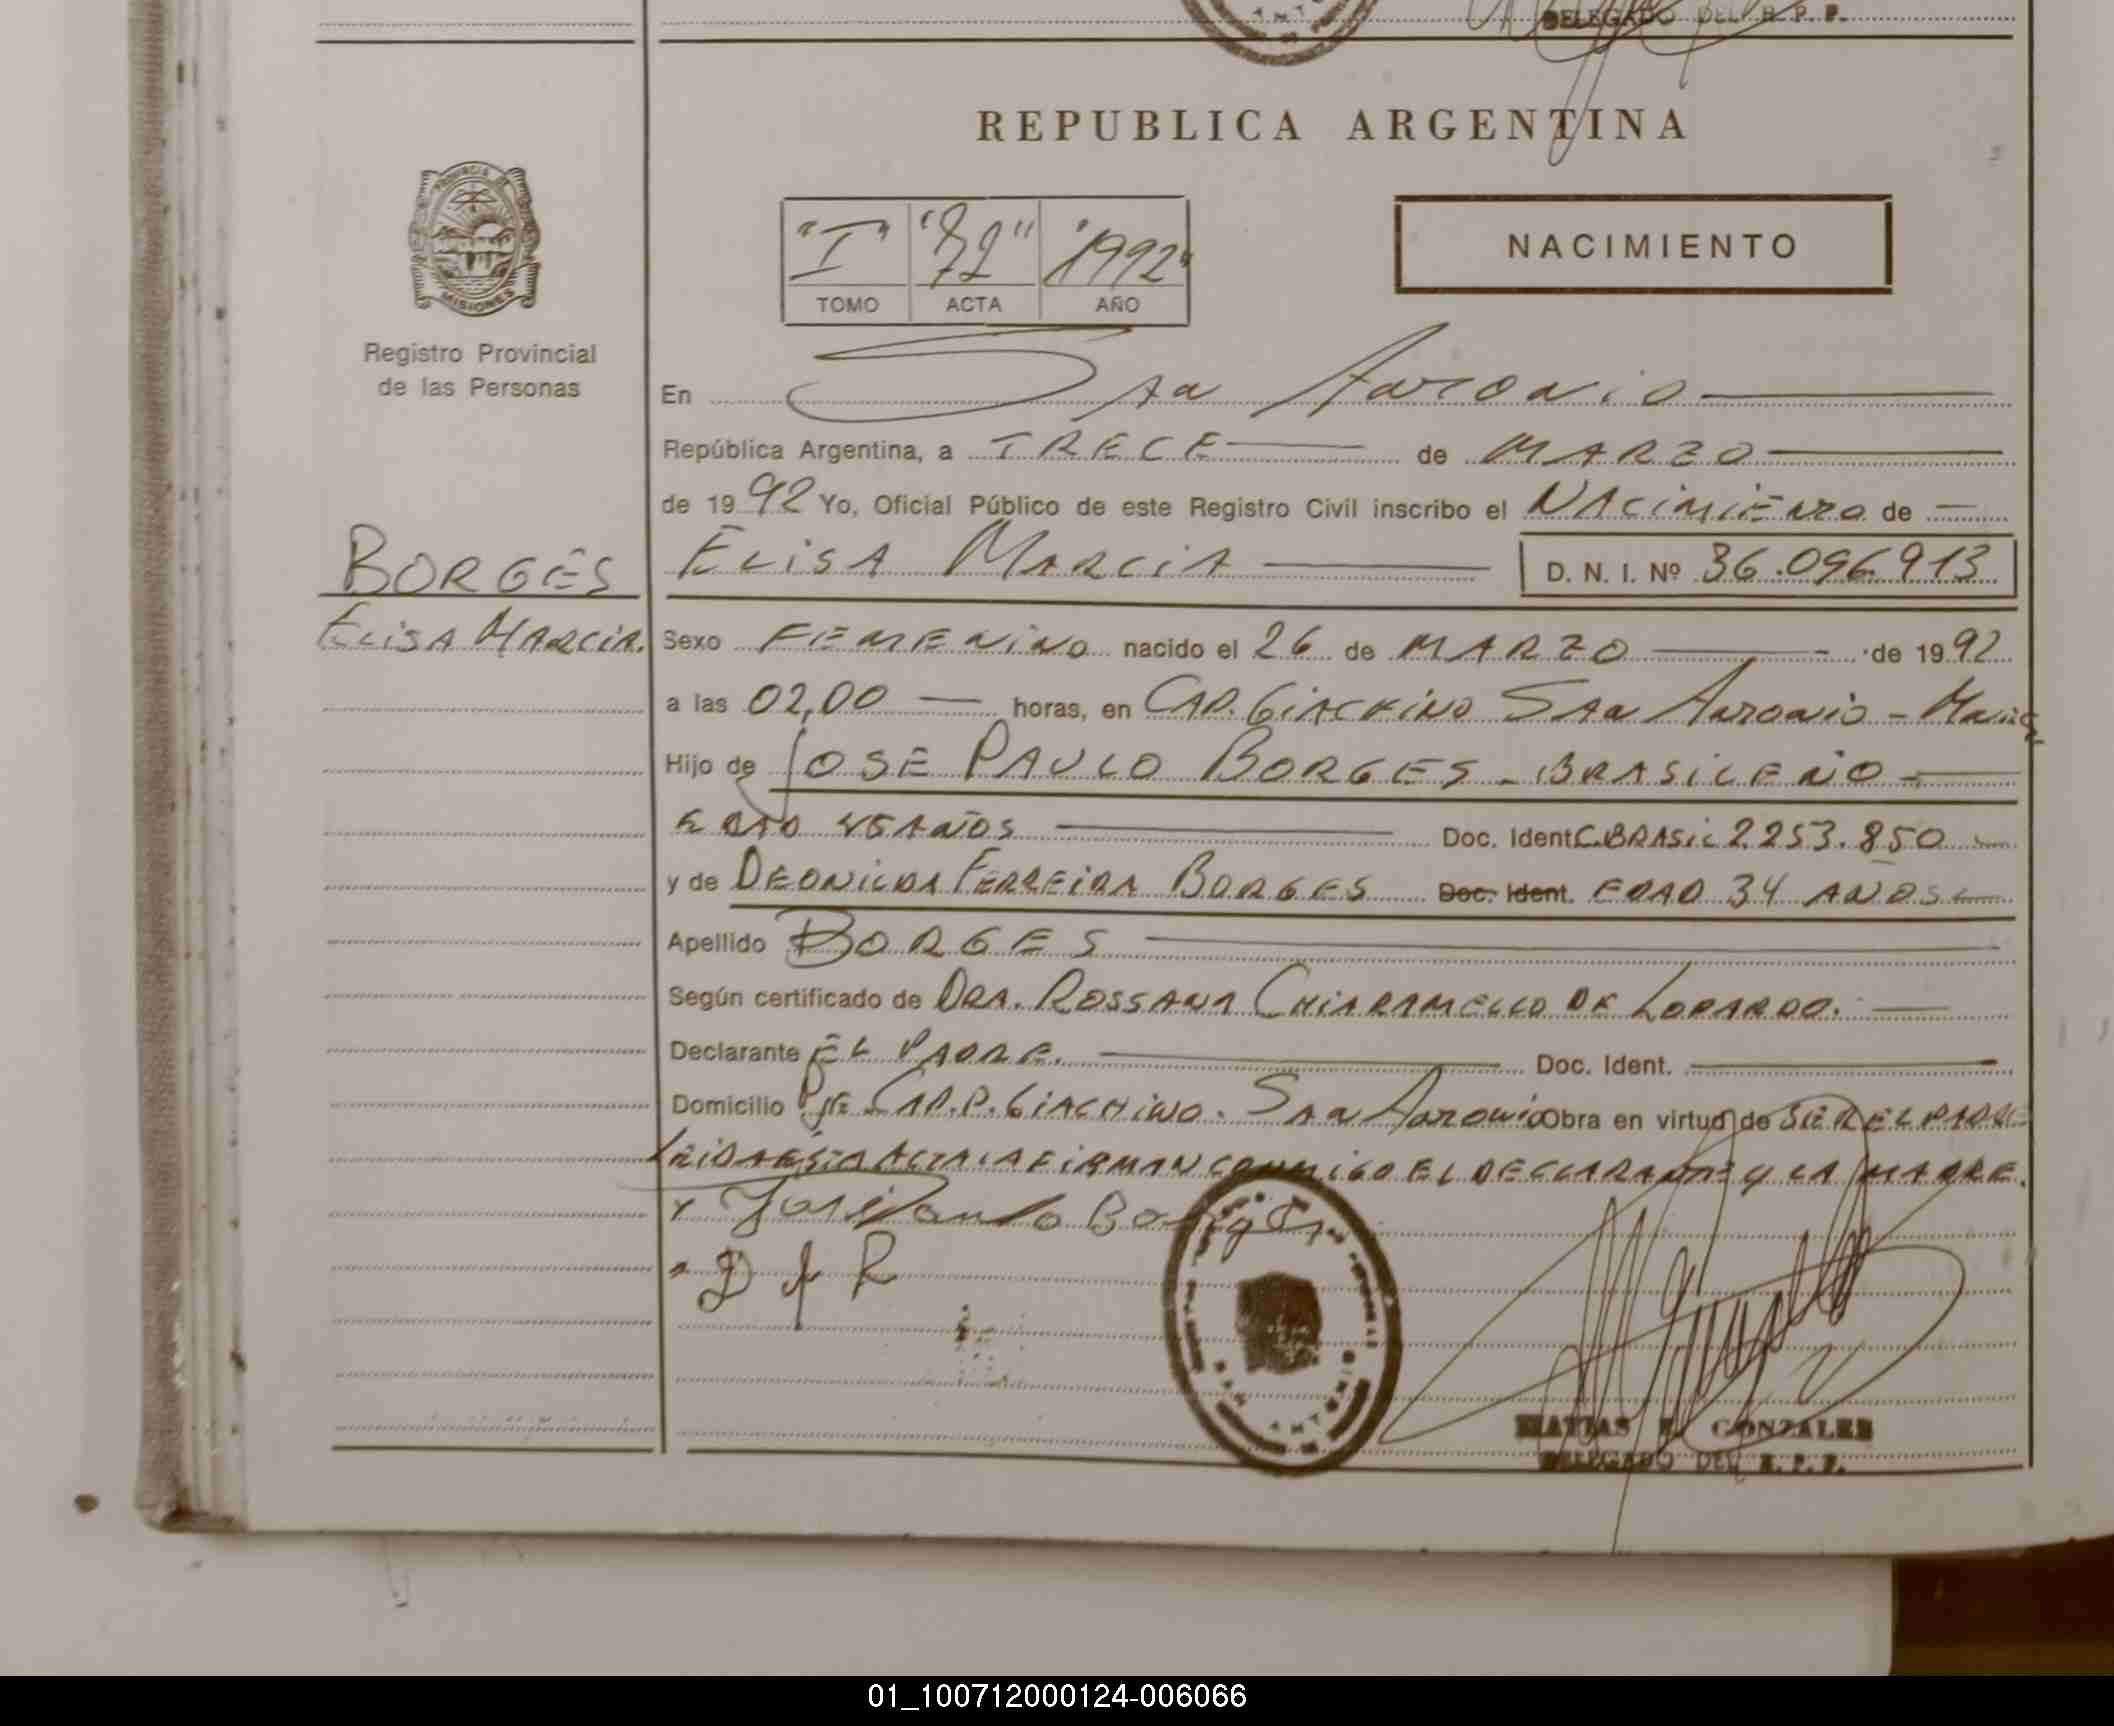 DELEGADO DEL R. P. P.
REPUBLICA ARGENTINA
PROVINCIA DE
MISIONES
Registro Provincial
de las Personas
"I" "72" "1992"
TOMO ACTA AÑO
NACIMIENTO
En San Antonio
República Argentina, a TRECE de MARZO
de 1992 Yo, Oficial Público de este Registro Civil inscribo el NACIMIENTO de
BORGES
ELISA MARCIA
ELISA MARCIA D. N. I. Nº 36.096.913
Sexo FEMENINO nacido el 26 de MARZO de 1992
a las 02,00 horas, en CAP. GIACHINO SAN ANTONIO -
Hijo de JOSE PAULO BORGES - BRASILEÑO -
EDAD AÑOS Doc. Ident C. BRASIL 2.253.850
y de DEONILDA FERREIRA BORGES Doc. Ident. EDAD 34 AÑOS
Apellido BORGES
Según certificado de DRA. ROSSANA CHIARAMELLO DE LODARDO.
Declarante EL PADRE. Doc. Ident.
Domicilio PJE CAP. P. GIACHINO. SAN ANTONIO Obra en virtud de SER EL PADRE
LEIDA ESTA ACTA LA FIRMAN CONMIGO EL DECLARANTE Y LA MADRE.
x José Paulo Borges
D F R
SAN ANTONIO
MATIAS E. GONZALES
DELEGADO DEL R. P. P.
01_100712000124-006066